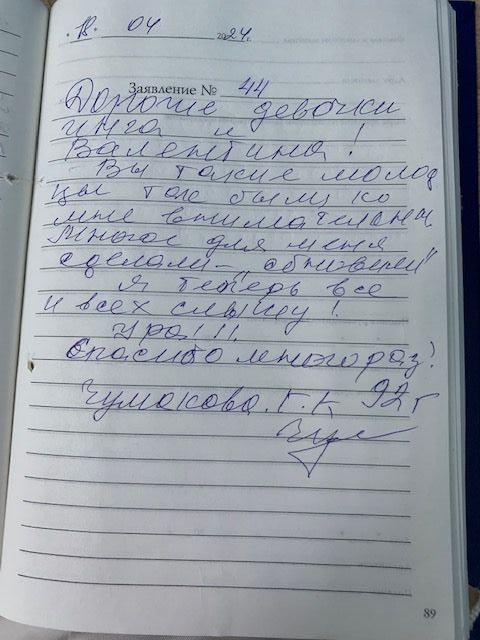 18. 04 2024г.
Заявление № 44
Дорогие девочки
Инга и !
Валентина!
Вы такие молод
цы так были ко
мне внимательны
Многое для меня
сделали – „обновили"
Я теперь все
и всех слышу!
Ура!!!
Спасибо много раз!
Чумакова. К. К 92 г
89